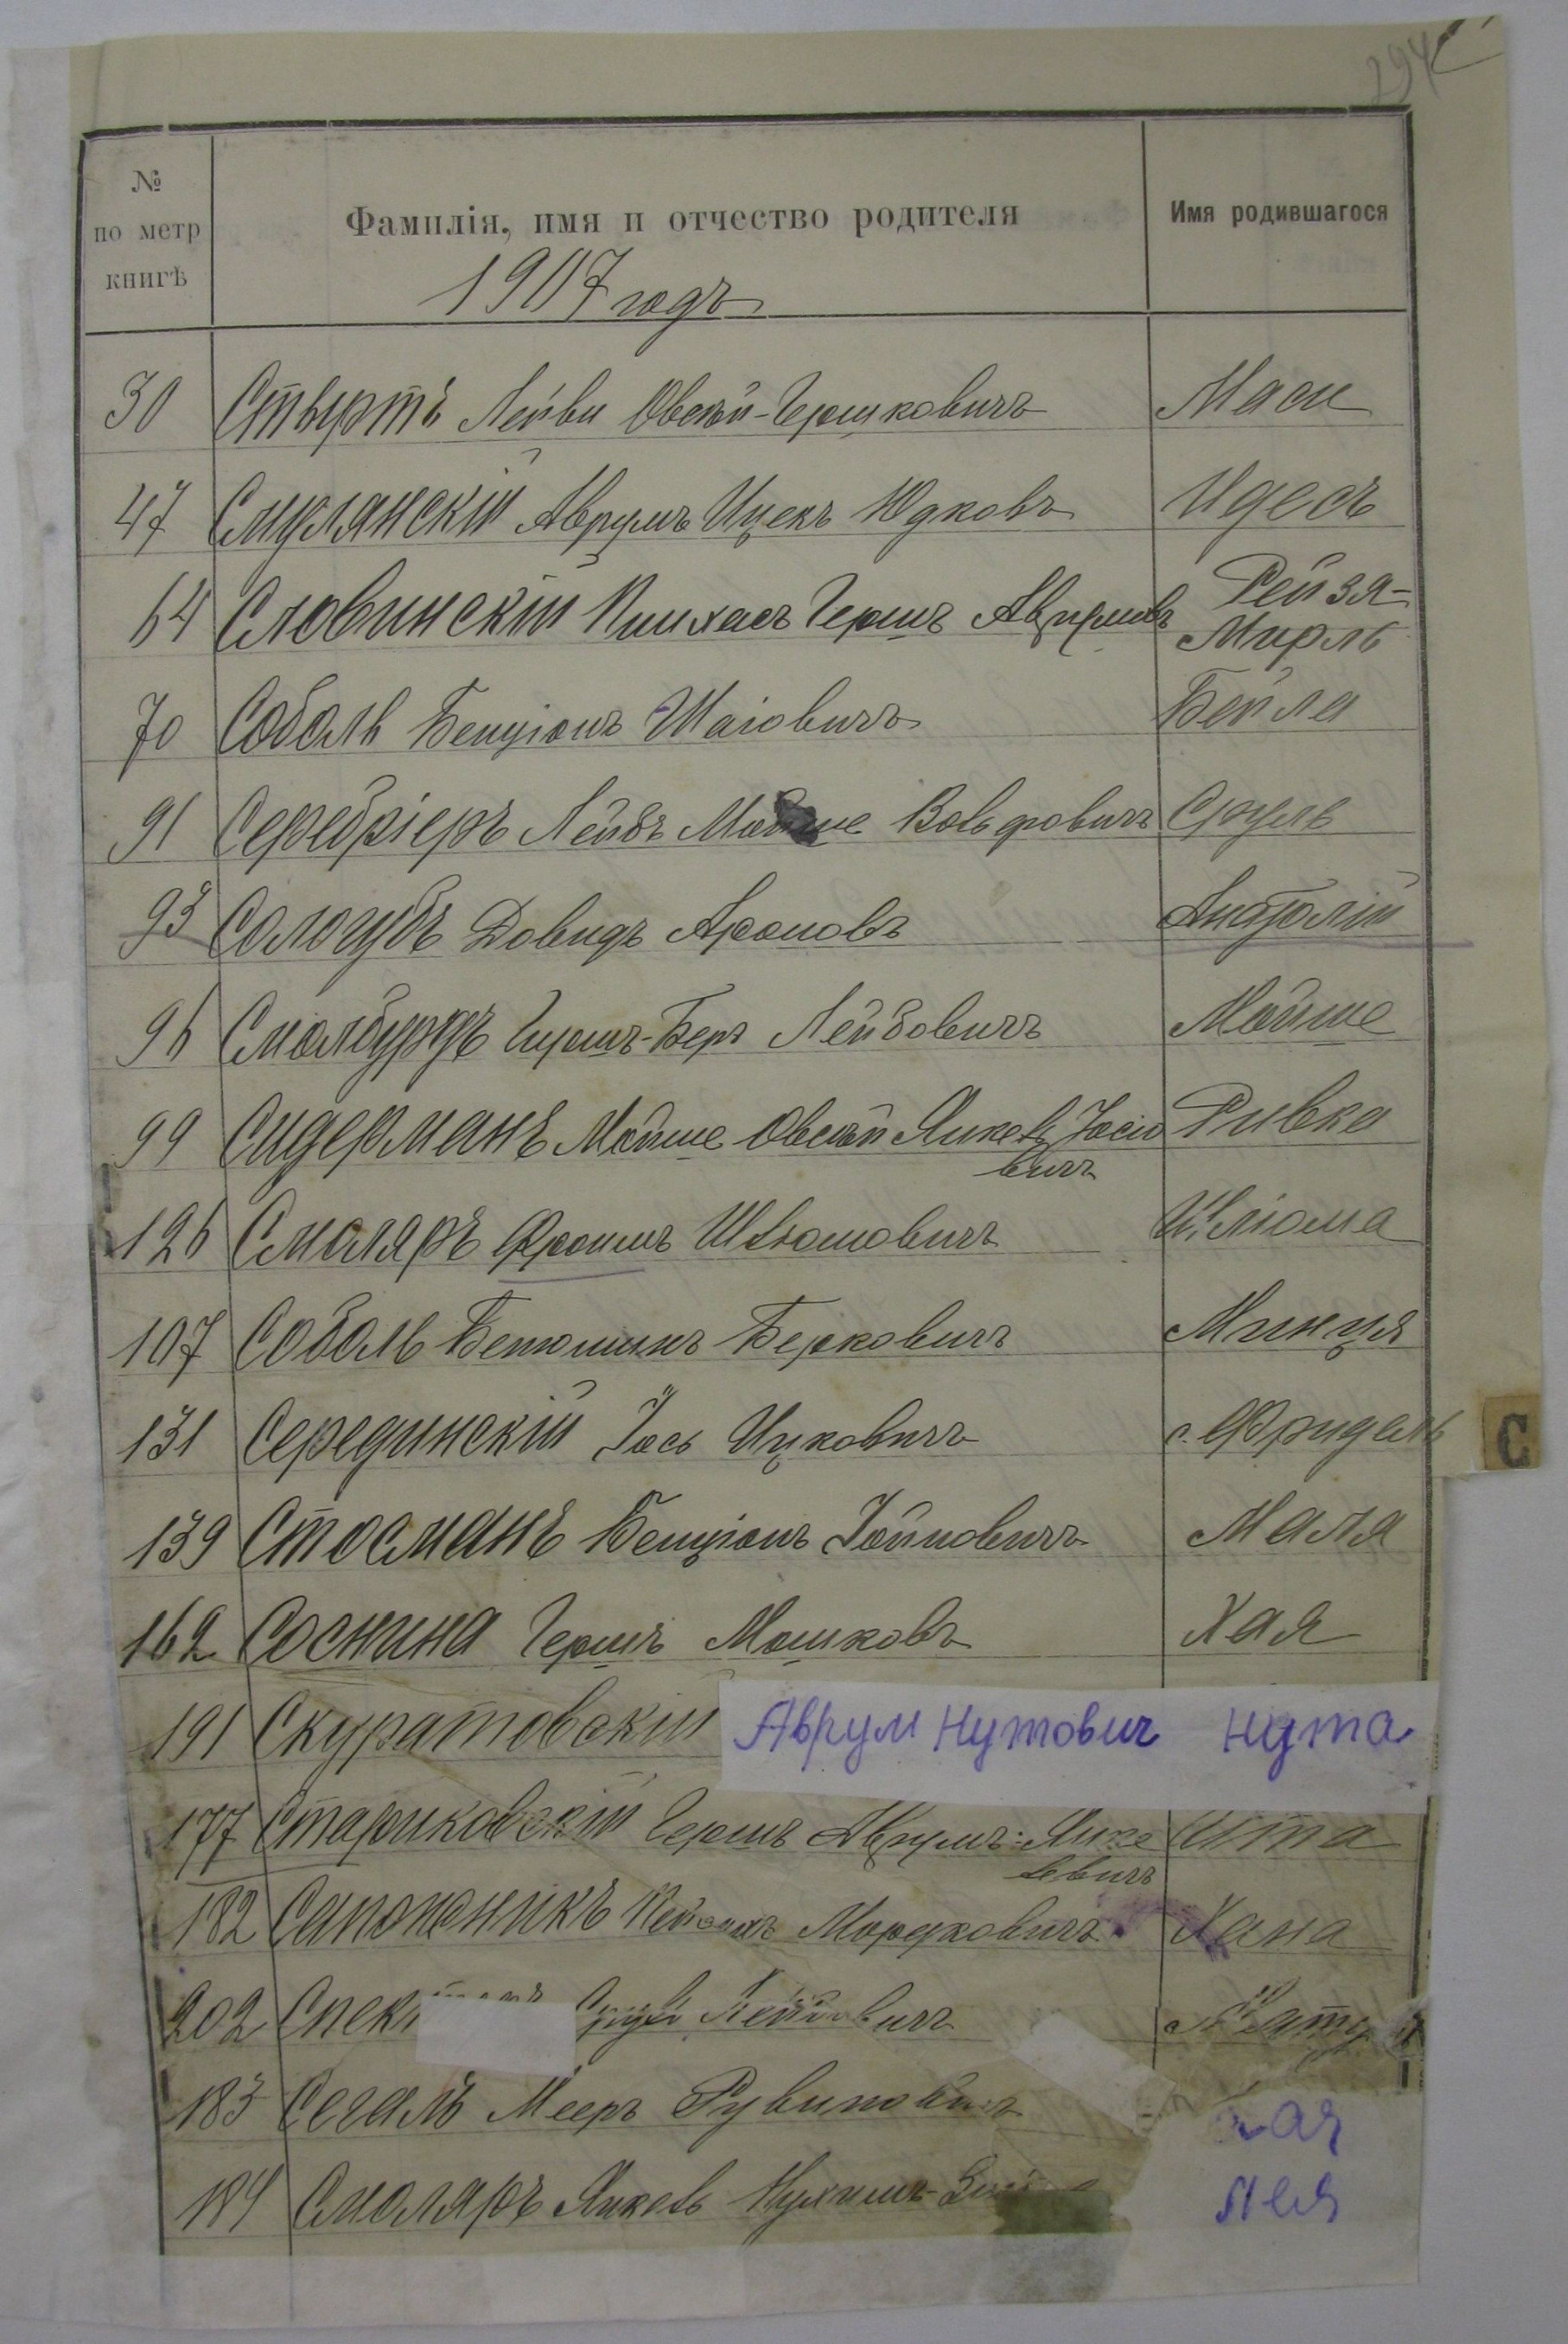 294
№ по метр книгѣ
Фамилія, имя и отчество родителя
Имя родившагося
1907 годъ
30 Лейви Овсѣй-Гершковичъ Маси
47 Смулянскій Аврумъ Ицекъ Юдковъ Идесъ
64 Словинскій Пинхасъ Гершъ Аврумовъ Рейзя-
Мирль
70 Соболь Бенціонъ Шаіовичъ Бейла
91 Серебріеръ Лейбъ Мойше Вольфовичъ Сруль
93 Сологубъ Довидъ Ароновъ Анатолій
96 Гершъ-Беръ Лейбовичъ Мойше
99 Сидерманъ Мойше Овсѣй Янкель Іосіо Ривка
вичъ
126 Смоляръ Фроимъ Шліомовичъ Шліома
107 Соболь Беніоминъ Берковичъ Минця
131 Серединскій Іось Ицковичъ с. Фридель
139 Стосманъ Бенціонъ Іойновичъ Маля
162 Соснина Гершъ Мошковъ Хая
191 Скуратовскій Аврум Нутович Нута
177 Стариковскій Гершъ Аврумъ-Янке Ита
левичъ
182 Сапожникъ Мордковичъ Хана
202 Спек Сруль Лейбовичъ
183 Сегалъ Мееръ Рувиновичъ
184 Смоляръ Янкель Нухимъ- Лея
С